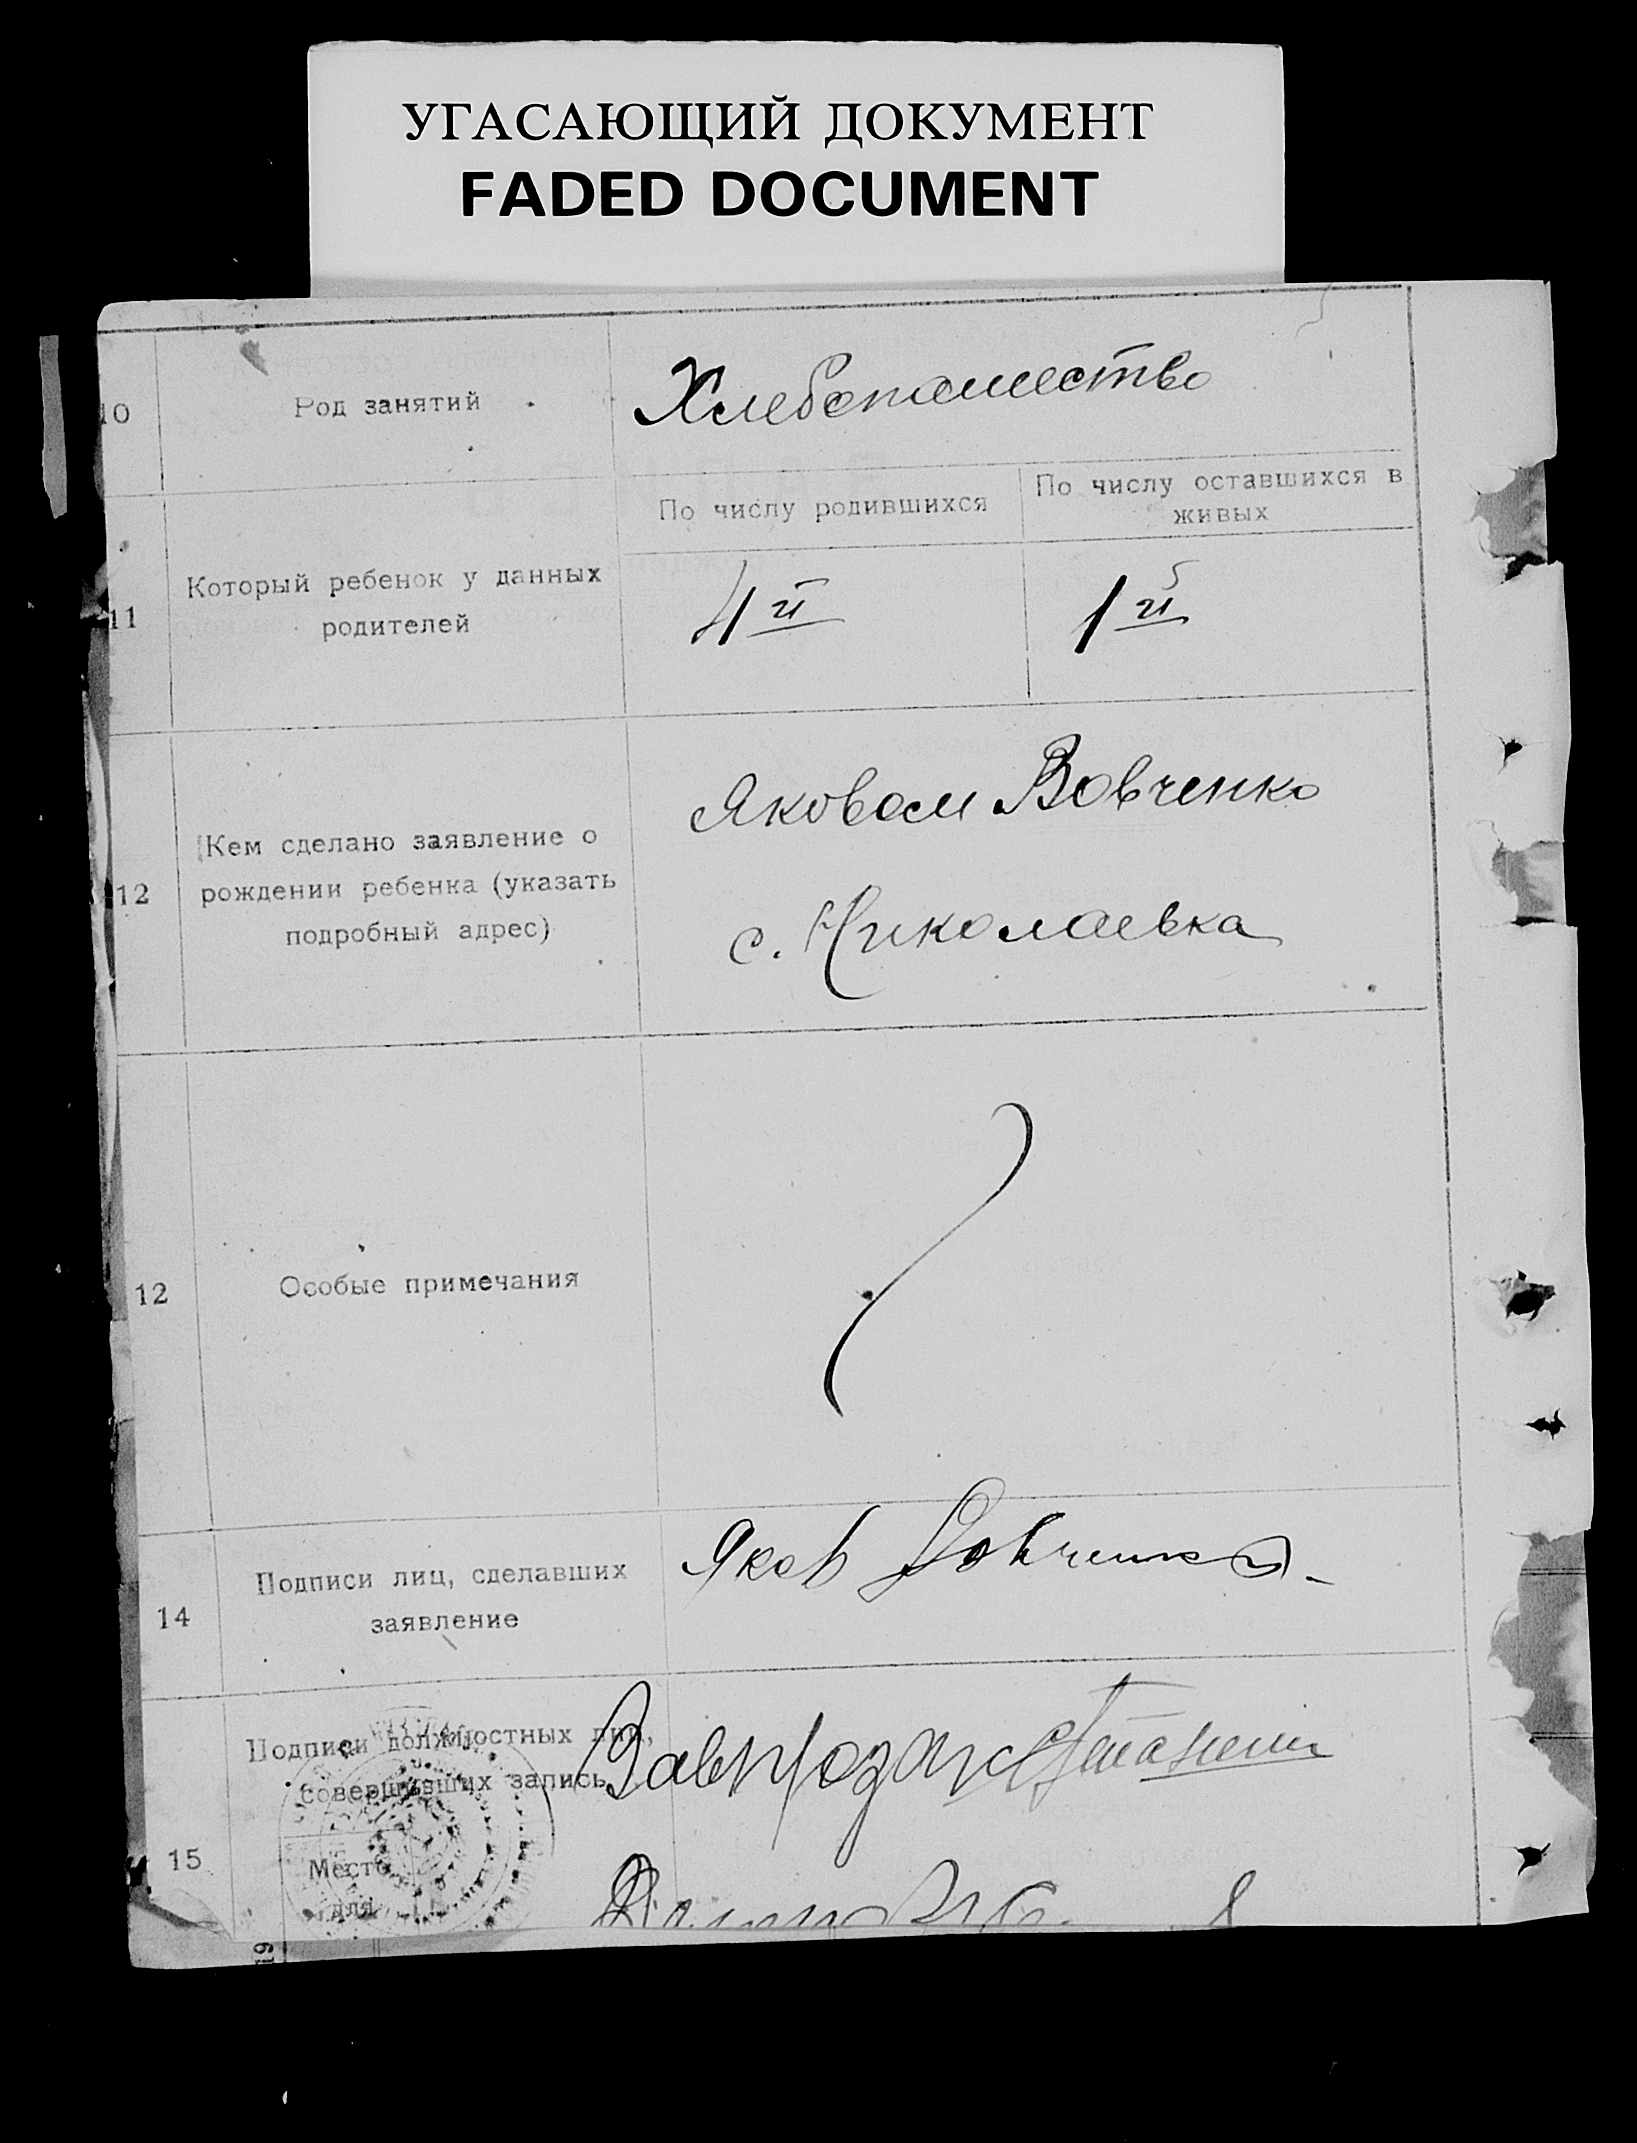 УГАСАЮЩИЙ ДОКУМЕНТ
FADED DOCUMENT
10 Род занятий Хлебопашество
По числу родившихся
По числу оставшихся в
живых
11 Который ребенок у данных
родителей
4й
1й
12 Кем сделано заявление о
рождении ребенка (указать
подробный адрес)
Яковом Вовченко
с. Николаевка
12 Особые примечания
14 Подписи лиц, сделавших
заявление
Яков Вовченко
15 Подписи должностных лиц,
совершивших запись
Место
для